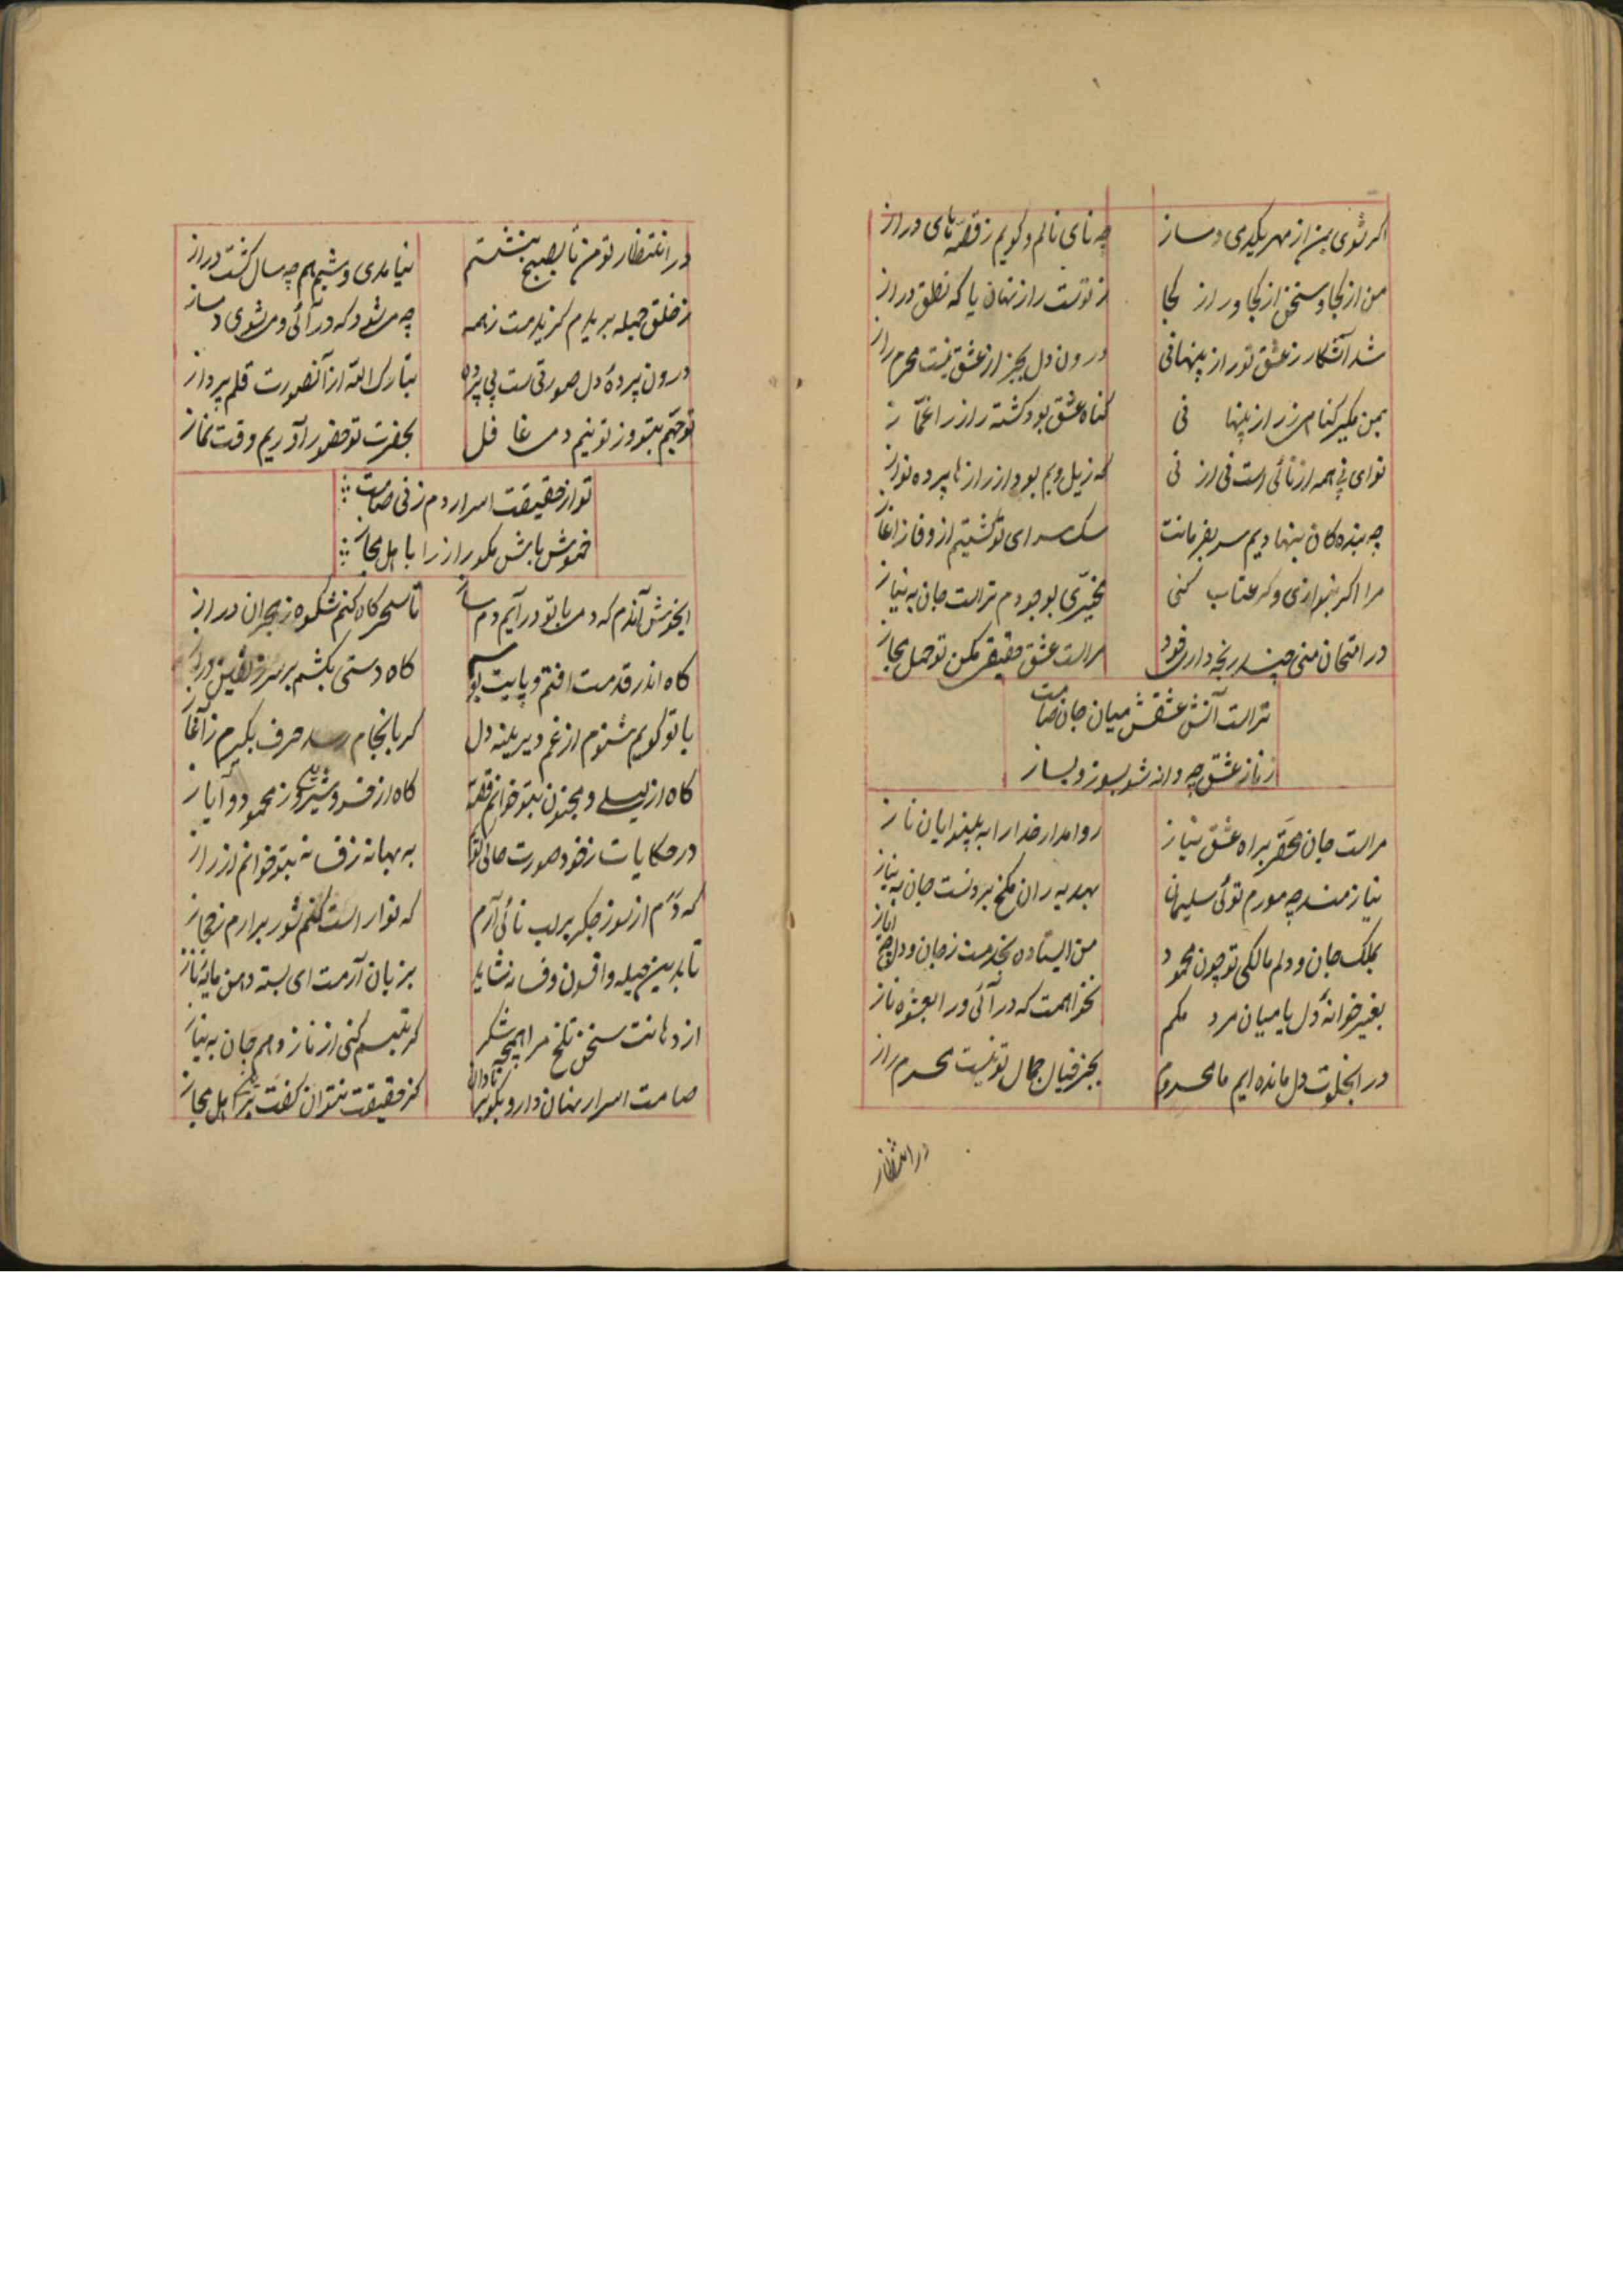 اکر شوی بمن از مهر یکدمی دمساز
چه نای نالم و کویم ز قصّه‌های دراز
من از کجا و سخن از کجا و راز کجا
ز توست راز نهان یا که نطق در از
شد آشکار ز عشق تو راز پنهانی
درون دل بجز از عشق نیست محرم راز
بمن مکیر کناهی ز راز پنها نی
کناه عشق بود کشته راز را غمّاز
نوای نی همه از نائی است نی از نی
که زیل و بم بود از راز ها پرده نواز
چه بنده کان بنهادیم سر بفرمانت
سک سرای تو کشتیم از وفا ز اغاز
مرا اکر بنوازی و کر عتاب کنی
مخیّری بوجودم تراست جان به نیاز
در امتحان منی چند رنجه داری خود
مراست عشق حقیقی مکن تو حمل مجاز
تراست آتش عشقش میان جان صامت
ز ناز عشق چه وانه شو بسوز و بساز
مراست جان محقر براه عشق نیاز
روا مدار خدا را به بینوایان ناز
نیازمند چه مورم توئی سلیمانا
بهدیه ران ملخ بردنست جان به نیاز
بملک جان و دلم مالکی تو چون محمود
من ایستاده بخدمت ز جان و دل چه ایاز
بغیر خوانهٔ دل یا میان مرد مکم
نخواهمت که در آئی ور العشوه ناز
در انخلوت دل مانده ایم ما محروم
بجز خیال جمال تو نیست محرم راز
در انتظار
در انتظار تو من تا بصبح بنشستم
نیامدی و شبم هم چه سال کشت دراز
ز خلق جمله بریدم کزیدمت ز همه
چه میشود که در آئی و میشوی دمساز
درون پردهٔ دل صورتی است بی پرده
تبارک الله از آنصورت قلم پرداز
توجّهم بتو و ز تو نیم دمی غافل
بحضرت تو حضور آوریم وقت نماز
تو از حقیقت اسرار دم زنی صامت
خموش باش مکو راز را با اهل مجاز
ایخوش آندم که دمی با تو در آیم دمساز
تا سحر کاه کنم شکوه ز هجران دراز
کاه اندر قدمت افتم و پایت بوسم
کاه دستی بکشم بر سر زلفین دراز
با تو کویم شنوم از غم دیرینه دل
کر بانجام رسد حرف بکیرم ز آغاز
کاه از لیلی و مجنون بتو خوانم قصّه
کاه از خسرو و شیرین و ز محمود و آیاز
در حکایات ز خود صورت حالی کویم
به بهانه ز فسانه بتو خوانم از راز
که دم از سوز جکر بر لب نائی آرم
که نوا راست کنم شور برارم ز حجاز
تا بدین حیله و افسون و فسانه شاید
بزبان آرمت ای بسته دهن مایهٔ ناز
از دهانت سخن تلخ مرا همچه شکر
کر تبسم کنی از ناز دهم جان به نیاز
صامت اسرار نهان دار و مکو بر نادان
کز حقیقت نتوان کفت بر اهل مجاز